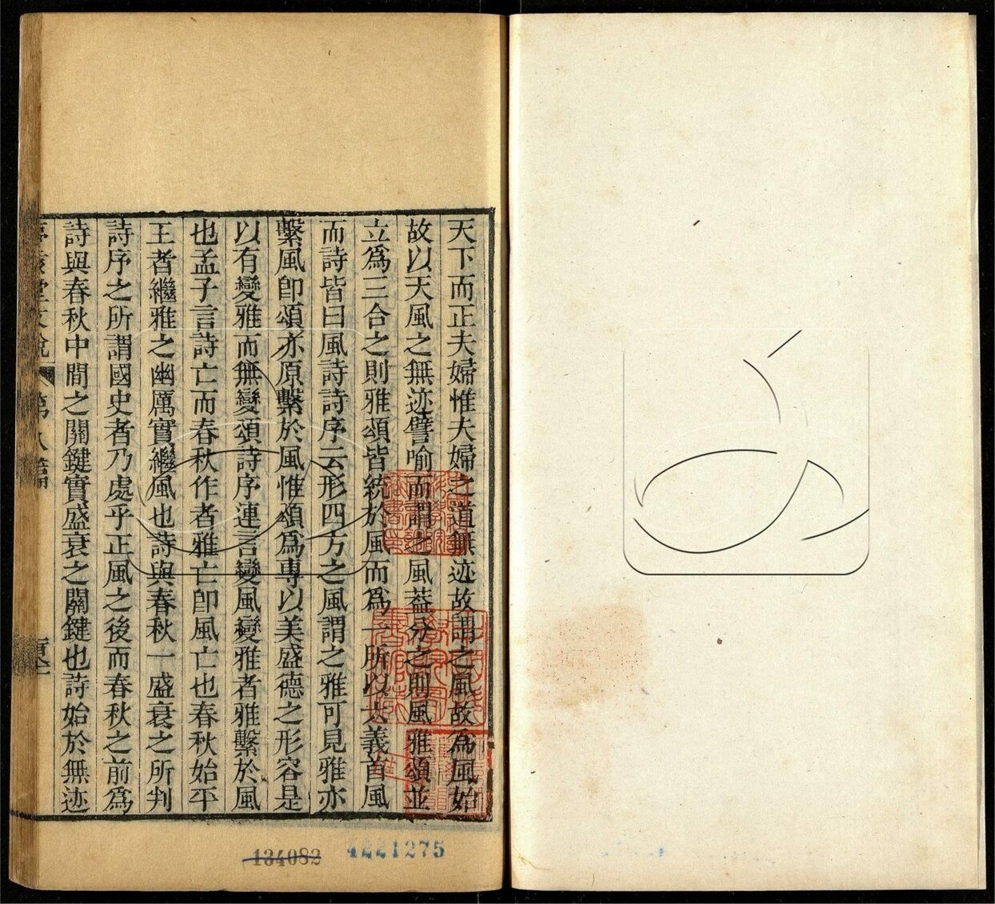 天下而正夫婦惟夫婦之道無迹故謂之風故為風始
故以天風之無迹譬喻而謂之風葢分之則風雅頌並
立爲三合之則雅頌皆統於風而爲一所以大義首風
而詩皆曰風詩詩序云形四方之風謂之雅可見雅亦
繫風卽頌亦原繫於風惟頌爲專以美盛德之形容是
以有變雅而無變頌詩序連言變風變雅者雅繫於風
也孟子言詩亡而春秋作者雅亡卽風亡也春秋始平
王者繼雅之幽厲實繼風也詩與春秋一盛衰之所判
詩序之所謂國史者乃處乎正風之後而春秋之前爲
詩與春秋中間之關鍵實盛衰之關鍵也詩始於無迹
堂文說 第八篇
134082
4221275